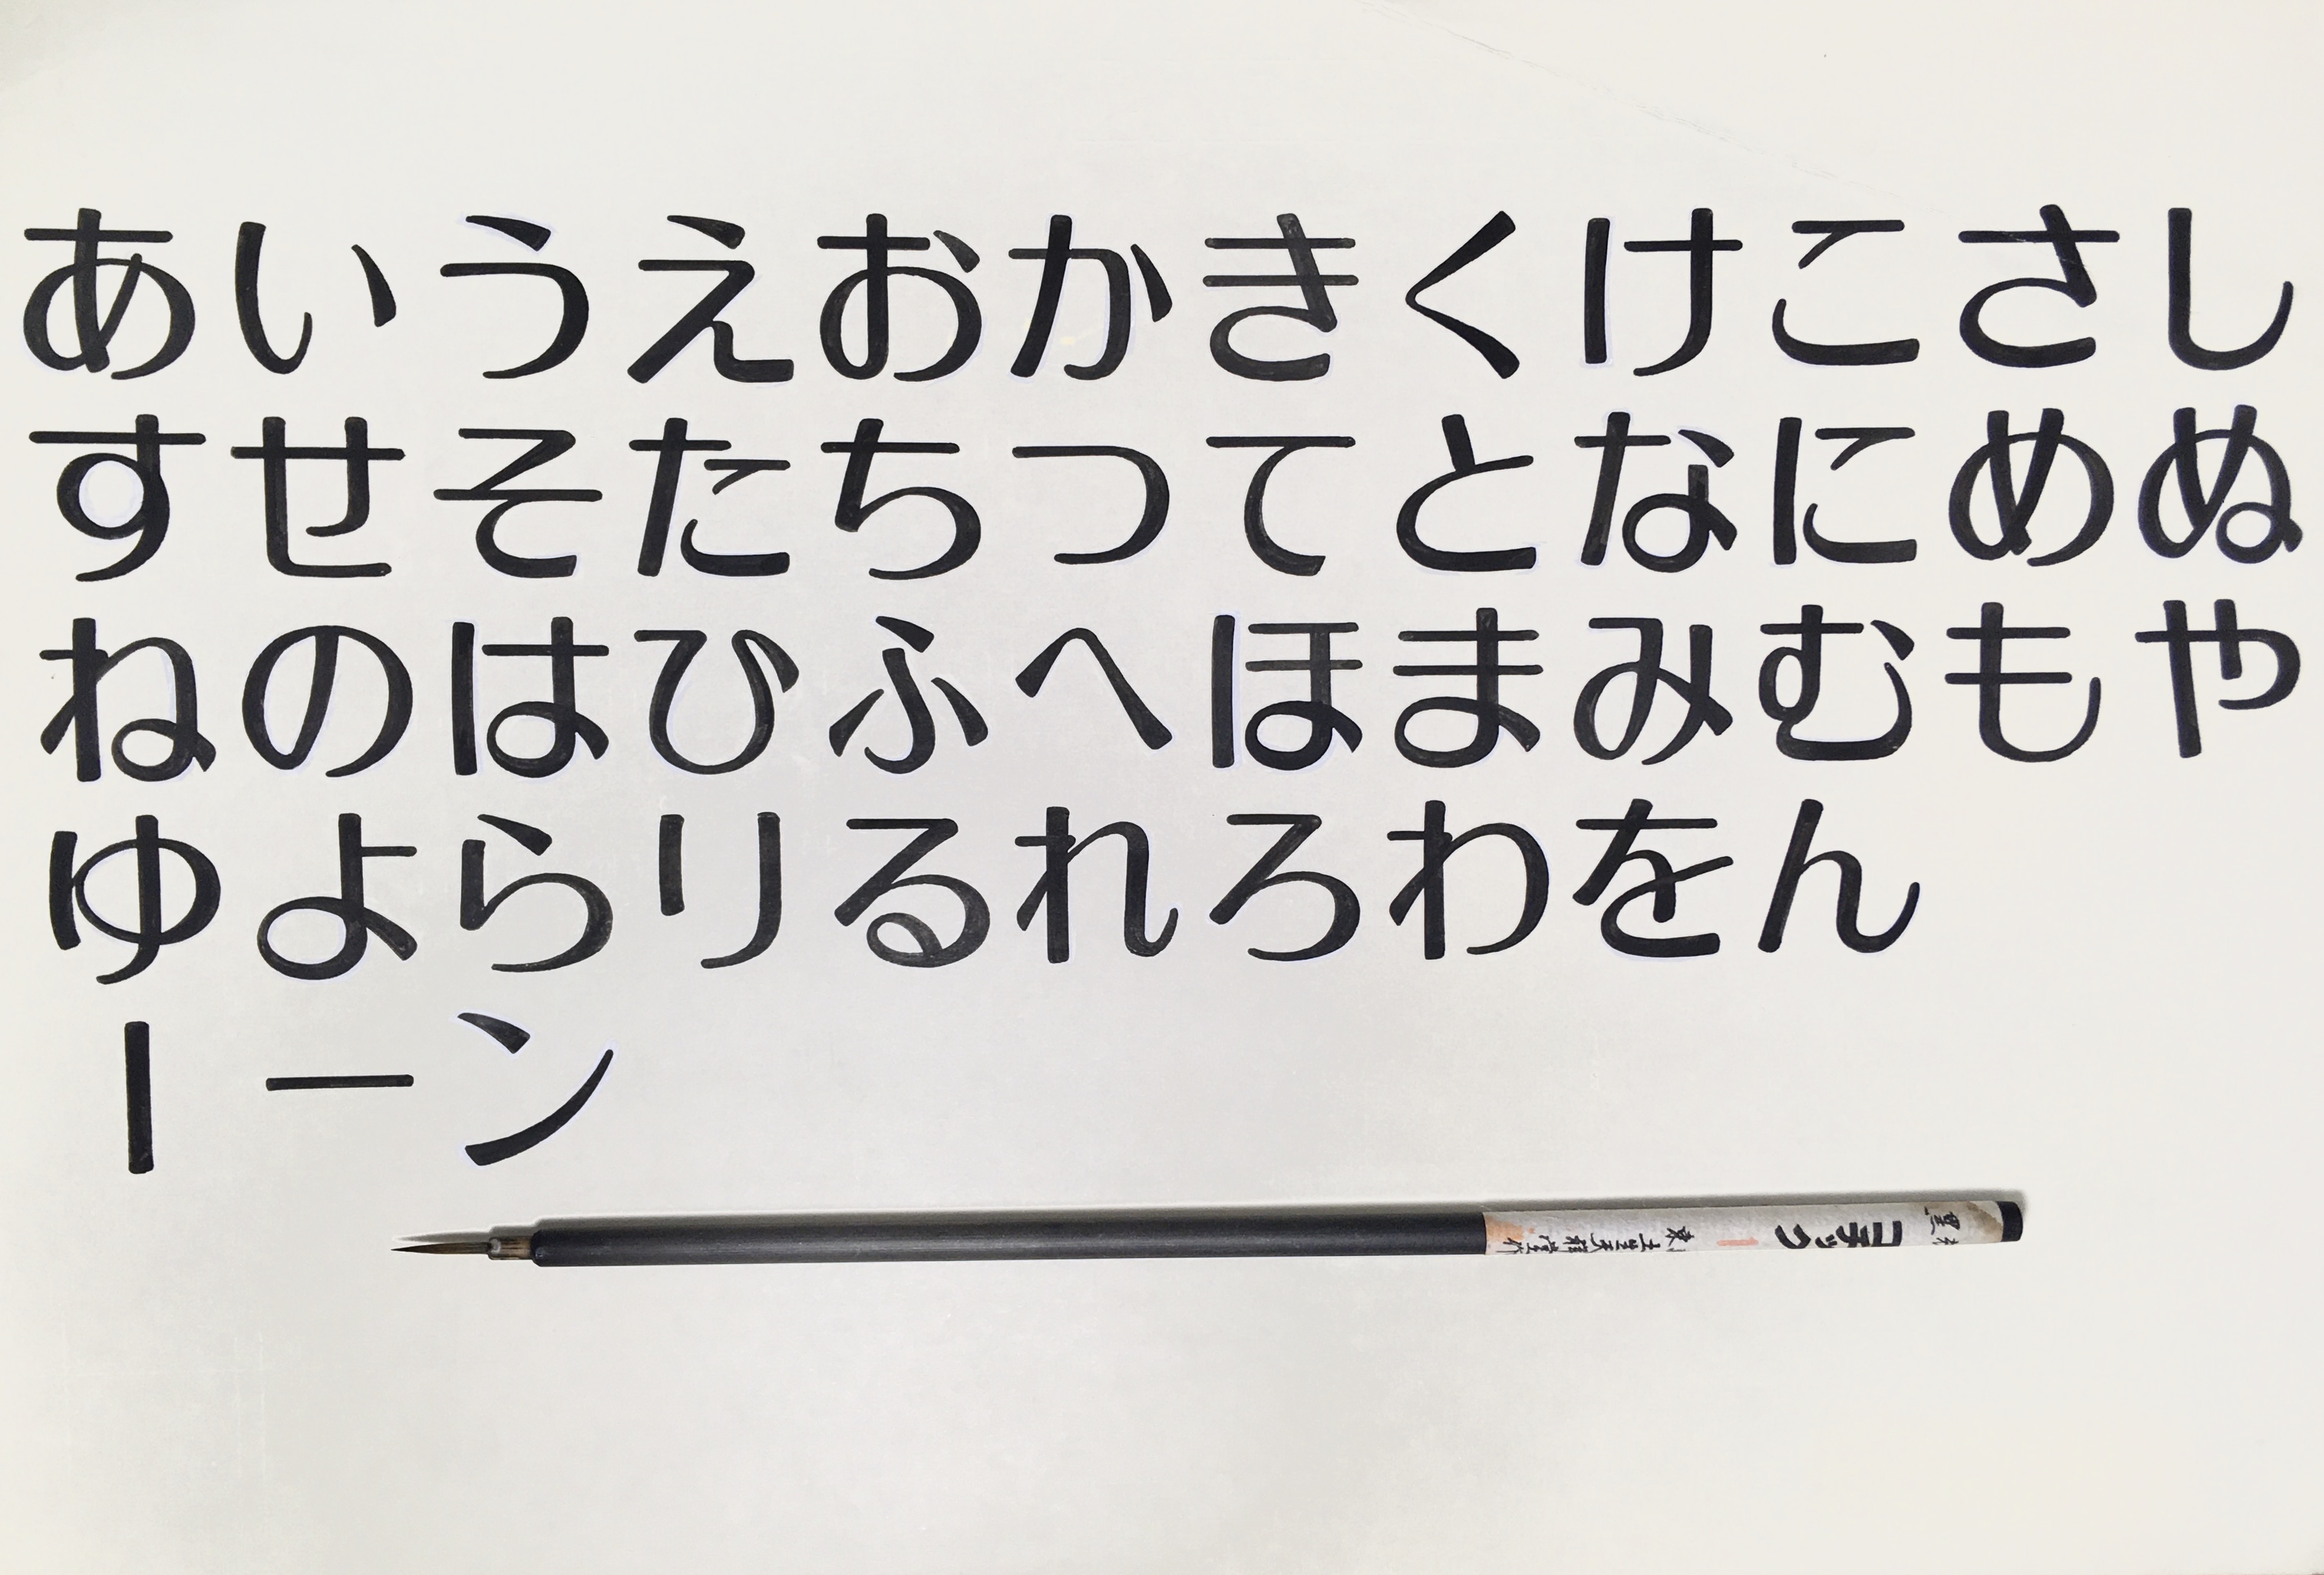 あいうえおかきくけこさし
すせそたちつてとなにめぬ
ねのはひふへほまみむもや
ゆよらりるれろわをん
｜ーン
ゴチック